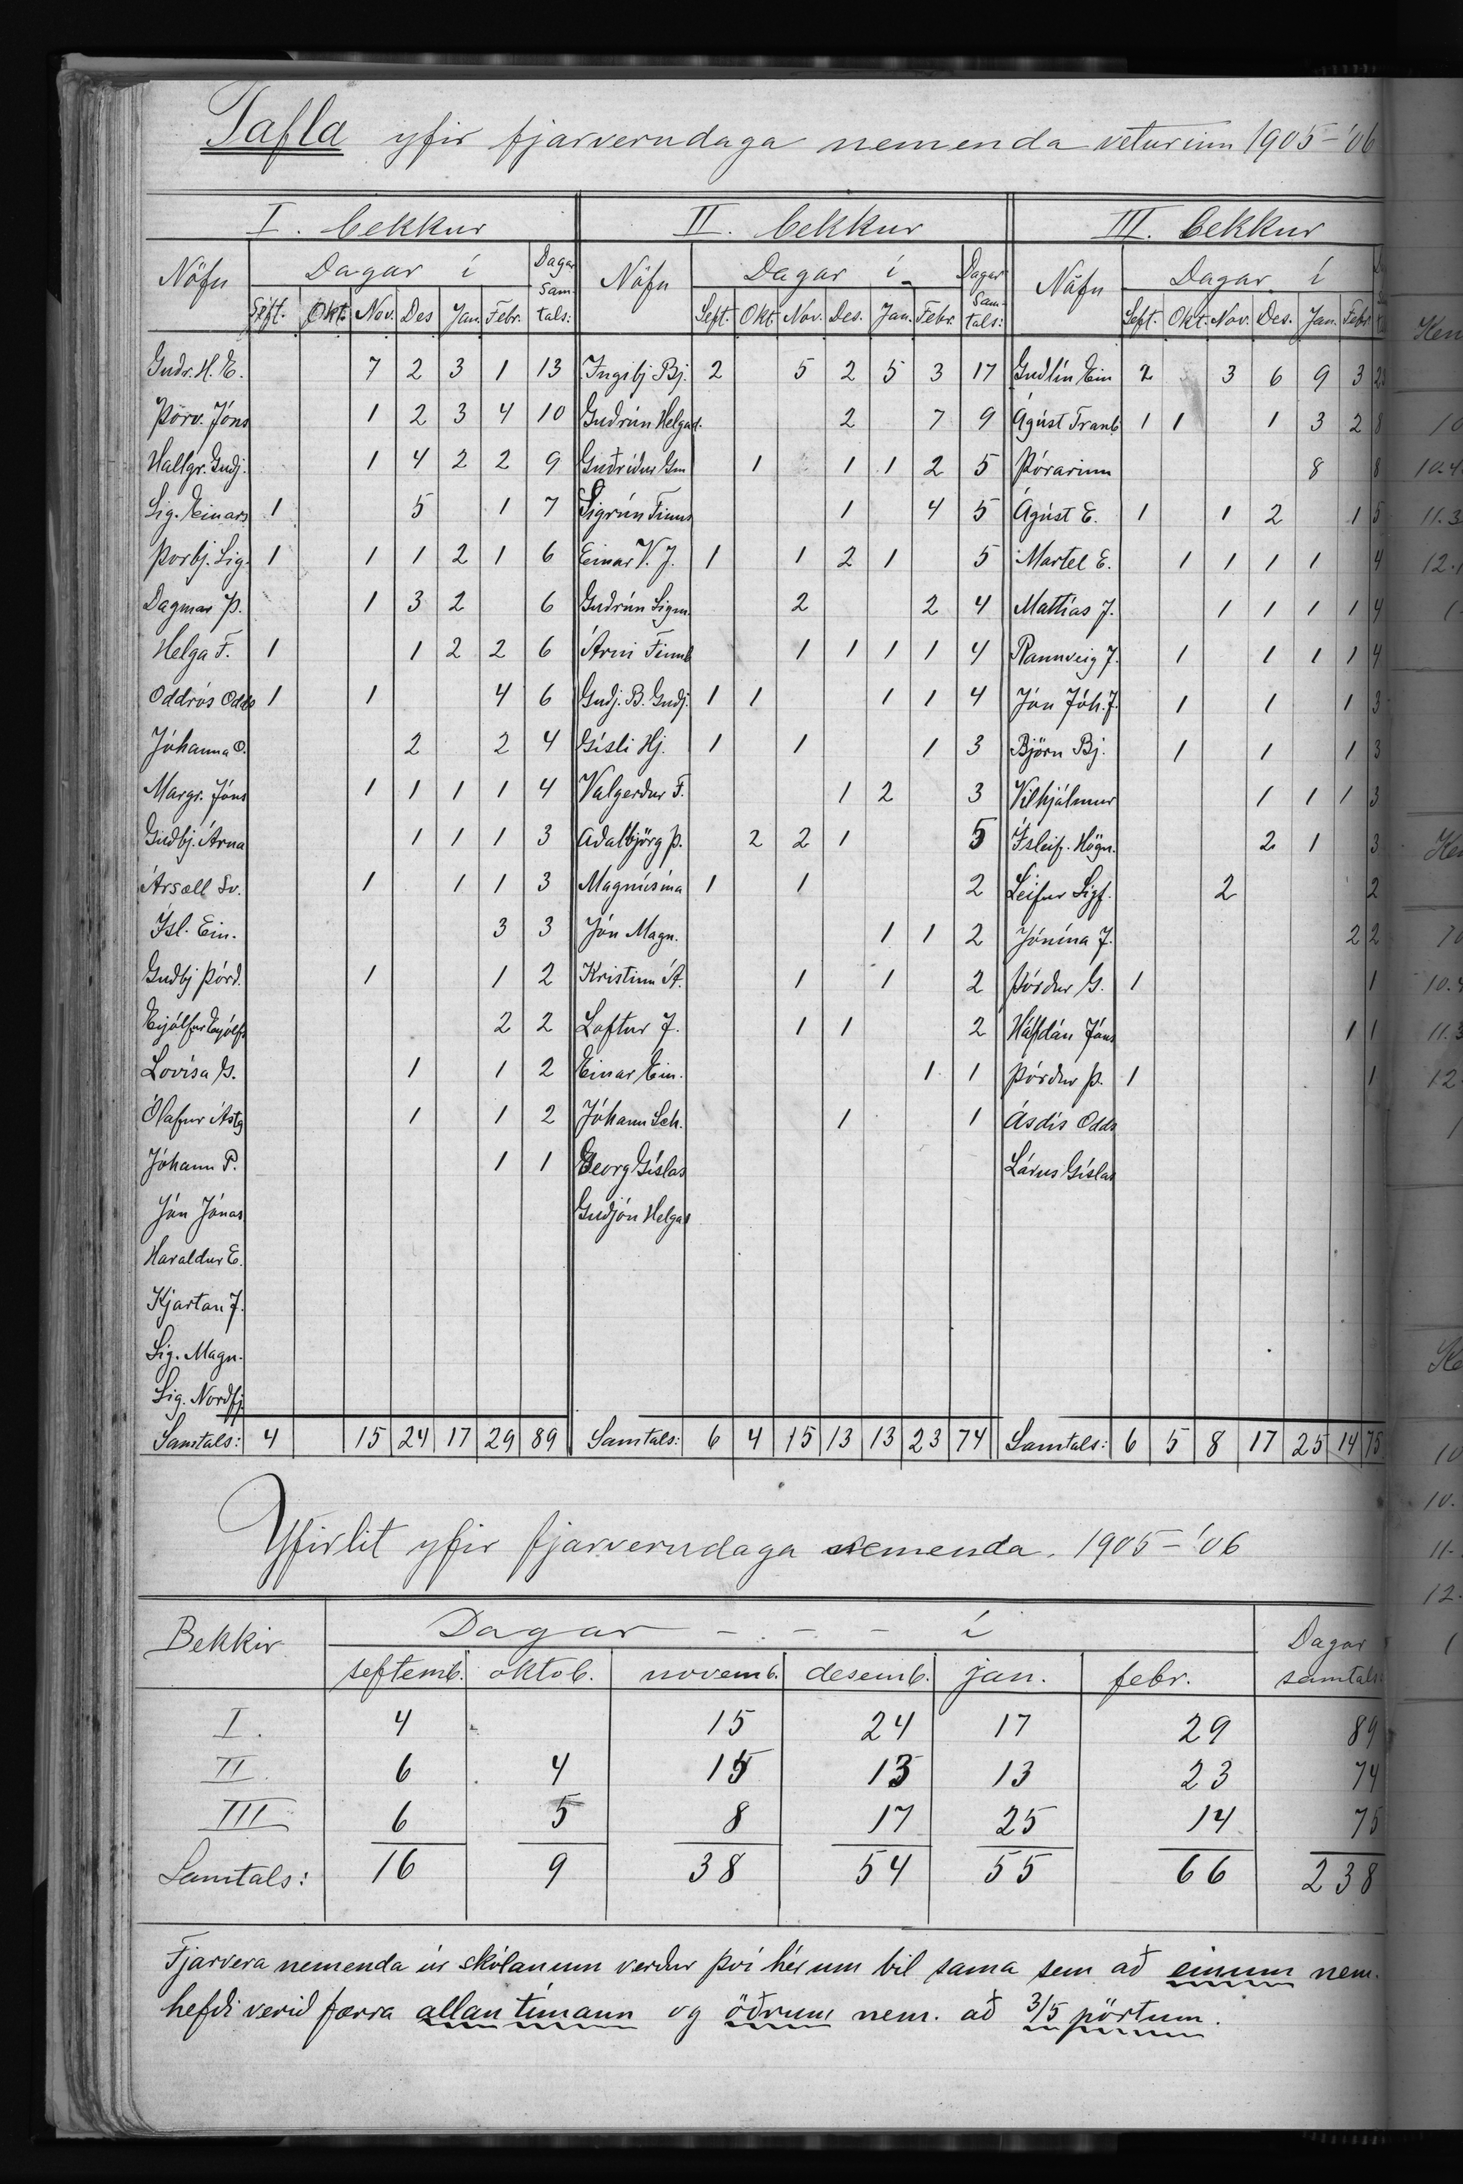 Tafla yfir fjarverudaga nemenda veturinn 1905-'06
I. bekkur II. bekkur III. bekkur
Nöfn Dagar í Dagar sam-tals: Nöfn Dagar í Dagar sam-tals: Nöfn Dagar í
Seft. Okt. Nov. Des Jan. Febr. Seft. Okt. Nov. Des. Jan. Febr. Seft. Okt. Nov. Des. Jan. Febr.
Guðr. H. E. 7 2 3 1 13 Ingibj Bj. 2 5 2 5 3 17 Guðlín Ein 2 3 6 9 3 23
Þórv. Jóns 1 2 3 4 10 Guðrún Helgad. 2 7 9 Ágúst Tranb 1 1 1 3 2 8
Hallgr. Guðj. 1 4 2 2 9 Guðríður Gm 1 1 1 2 5 Þórarinn 8 8
Sig. Einars 1 5 1 7 Sigrún Finns 1 4 5 Ágúst E. 1 1 2 1 5
Þorbj. Sig. 1 1 1 2 1 6 Einar V. J. 1 1 2 1 5 Martel E. 1 1 1 1 4
Dagmar Þ. 1 3 2 6 Guðrún Sigm. 2 2 4 Mattías J. 1 1 1 1 4
Helga F. 1 1 2 2 6 Árni Finnb 1 1 1 1 4 Rannveig J. 1 1 1 1 4
Oddrós Odds 1 1 4 6 Guðj. B. Guðj. 1 1 1 1 4 Jón Jóh. J. 1 1 1 3
Jóhanna O. 2 2 4 Gísli Hj. 1 1 1 3 Björn Bj. 1 1 1 3
Margr. Jóns 1 1 1 1 4 Valgerður F. 1 2 3 Vilhjálmur 1 1 1 3
Guðbj. Árna 1 1 1 3 Aðalbjörg Þ. 2 2 1 5 Ísleif. Högn. 2 1 3
Ársæll Sv. 1 1 1 3 Magnúsína 1 1 2 Leifur Sigf. 2 2
Ísl. Ein. 3 3 Jón Magn. 1 1 2 Jónína J. 2 2
Guðbj Þórð. 1 1 2 Kristinn Á. 1 1 2 Þórður G. 1 1
Eyjólfur Eyjólfs 2 2 Loftur J. 1 1 2 Hálfdán Jóns 1 1
Lovísa G. 1 1 2 Einar Ein. 1 1 Þórður Þ. 1 1
Ólafur Ástg 1 1 2 Jóhann Sch. 1 1 Ásdís Odds
Jóhann P. 1 1 Georg Gíslas Lárus Gíslas
Jón Jónas Guðjón Helgas
Haraldur E.
Kjartan J.
Sig. Magn.
Sig. Norðfj
Samtals: 4 15 24 17 29 89 Samtals: 6 4 15 13 13 23 74 Samtals: 6 5 8 17 25 14 75
Yfirlit yfir fjarverudaga nemenda. 1905-'06
Bekkir Dagar - - - í Dagar
seftemb. oktob. novemb. desemb. jan. febr. samtals
I. 4 15 24 17 29 89
II. 6 4 15 13 13 23 74
III 6 5 8 17 25 14 75
Samtals: 16 9 38 54 55 66 238
Fjarvera nemenda úr skólanum verður því hér um bil sama sem að einum nem.
hefði verið færra allan tímann og öðrum nem. að 3/5 pörtum.